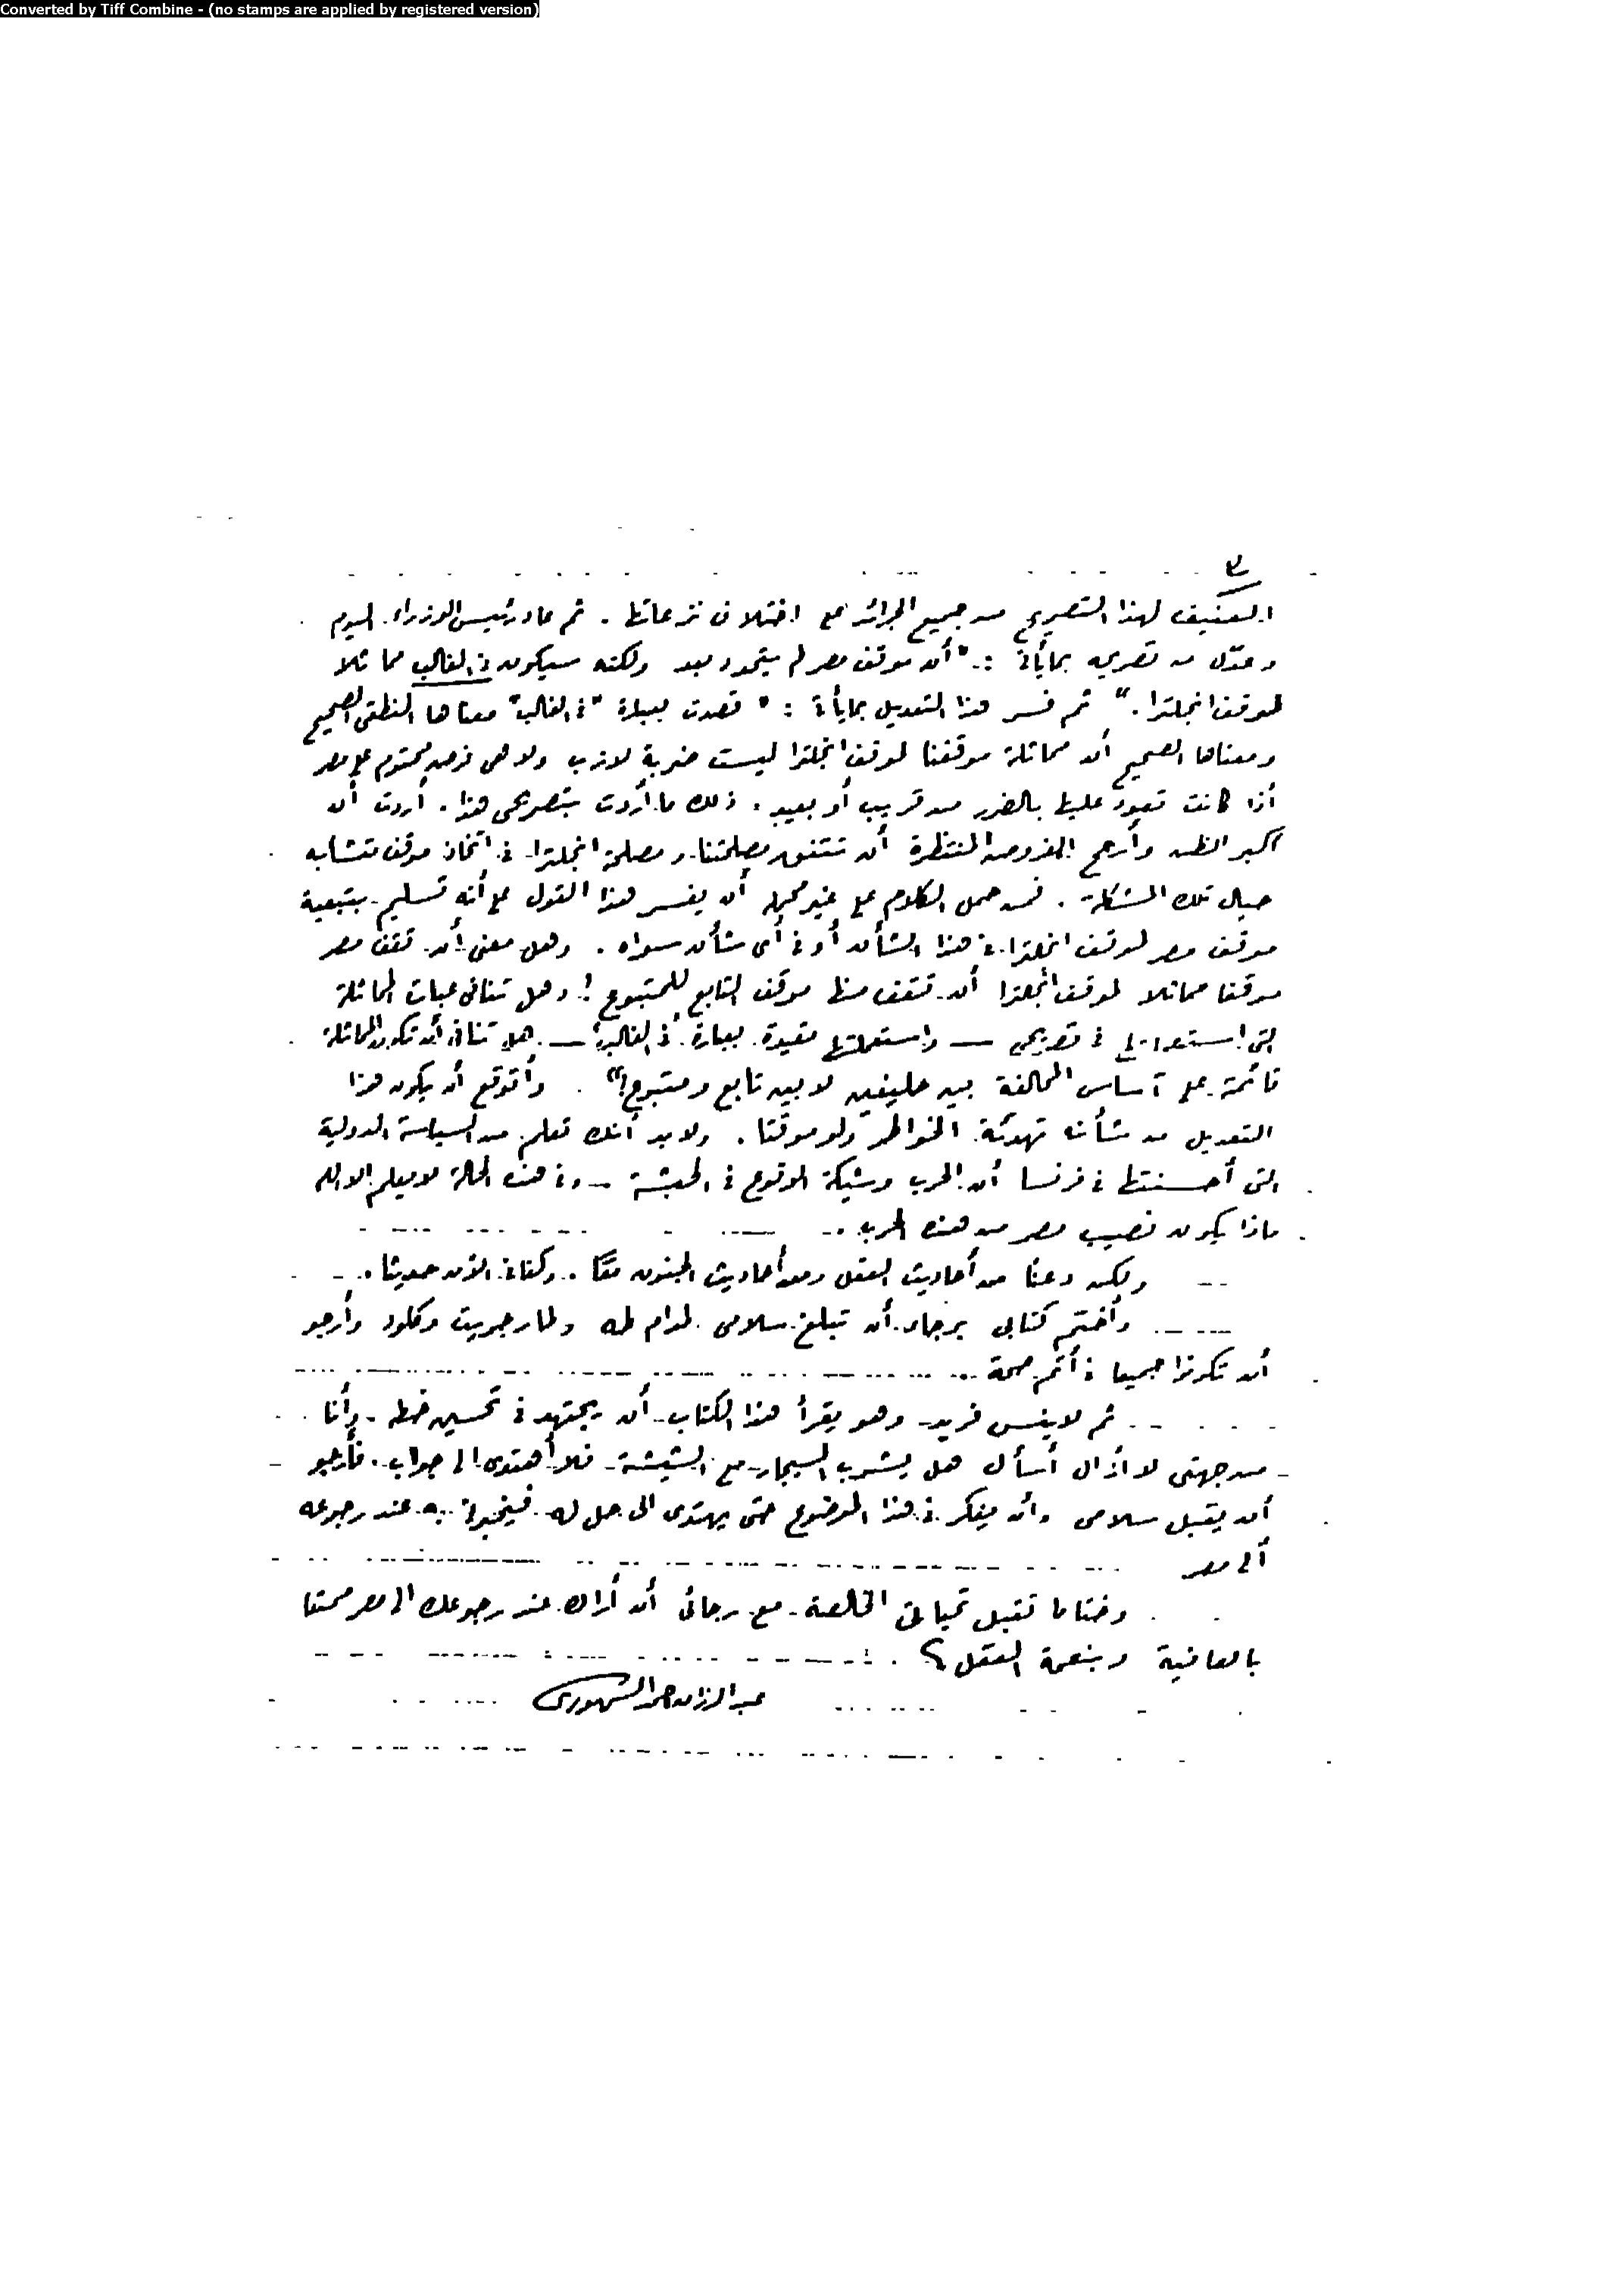 Converted by Tiff Combine - (no stamps are applied by registered version)
العنيف لهذا التصريح من جميع الجرائد على اختلاف نزعاتها . ثم عاد رئيس الوزراء اليوم
وعدّل من تصريحه بما يأتى : " أن موقف مصر لم يتحدد بعد ولكنه سيكون فى الغالب مماثلا
لموقف انجلترا . " ثم فسر هذا التعديل بما يأتى : " قصدت بعبارة " فى الغالب " معناها المنطقى الصحيح
ومعناها الصحيح أن مماثلة موقفنا لموقف انجلترا ليست ضربة لازب ولا هى فرض محتوم على مصر
أذا كانت تعود عليها بالضرر من قريب أو بعيد . ذلك ما أردت بتصريحى هذا . أردت أن
أكبر الظن وأرجح الفروض المنتظرة أن تتفق مصلحتنا ومصلحة انجلترا فى اتخاذ موقف متشابه
حيال تلك المشكلة . فمن حمل الكلام على غير محمله أن يفسر هذا القول على أنه تسليم بتبعية
موقف مصر لموقف انجلترا فى هذا الشأن أو فى أى شأن سواه . وهل معنى أن تقف مصر
موقفا مماثلا لموقف انجلترا أن تقف منها موقف التابع للمتبوع ! وهل تنافى عبارة المماثلة
التى استعملتها فى تصريحى — واستعملتها مقيدة بعبارة " فى الغالب " — هل تنافى أن تكون المماثلة
قائمة على أساس المحالفة بين حليفين لا بين تابع ومتبوع ! " . وأتوقع أن يكون هذا
التعديل من شأنه تهدئة الخواطر ولو موقتا . ولا بد أنك تعلم من السياسة الدولية
التى أحسنتها فى فرنسا أن الحرب وشيكة الوقوع فى الحبشة - وفى هذه الحالة لا يعلم الا الله
ماذا يكون نصيب مصر من هذه الحرب ..
ولكن دعنا من أحاديث العقل ومن أحاديث الجنون معًا .. وكفانى الآن حديثا .
وأختم كتابى برجاء أن تبلغ سلامى لمدام طه ولمارجريت وكلود وأرجو
أن تكونوا جميعا فى أتم صحة ..
ثم لا ينس فريد - وهو يقرأ هذا الكتاب - أن يجتهد فى تحسين خطه - وأنا
من جهتى لا أزال أسأل هل يشرب السيجار مع الشيشة - فلا أهتدى الى جواب . فأرجو
أن يقبل سلامى وأن يفكر فى هذا الموضوع حتى يهتدى الى حل له فيخبرنى به عند رجوعه
ألى مصر
وختاما تقبل تحياتى الخالصة مع رجائى أن أراك عند رجوعك الى مصر ممتعا
بالعافية وبنعمة العقل
عبد الرزاق احمد السنهورى